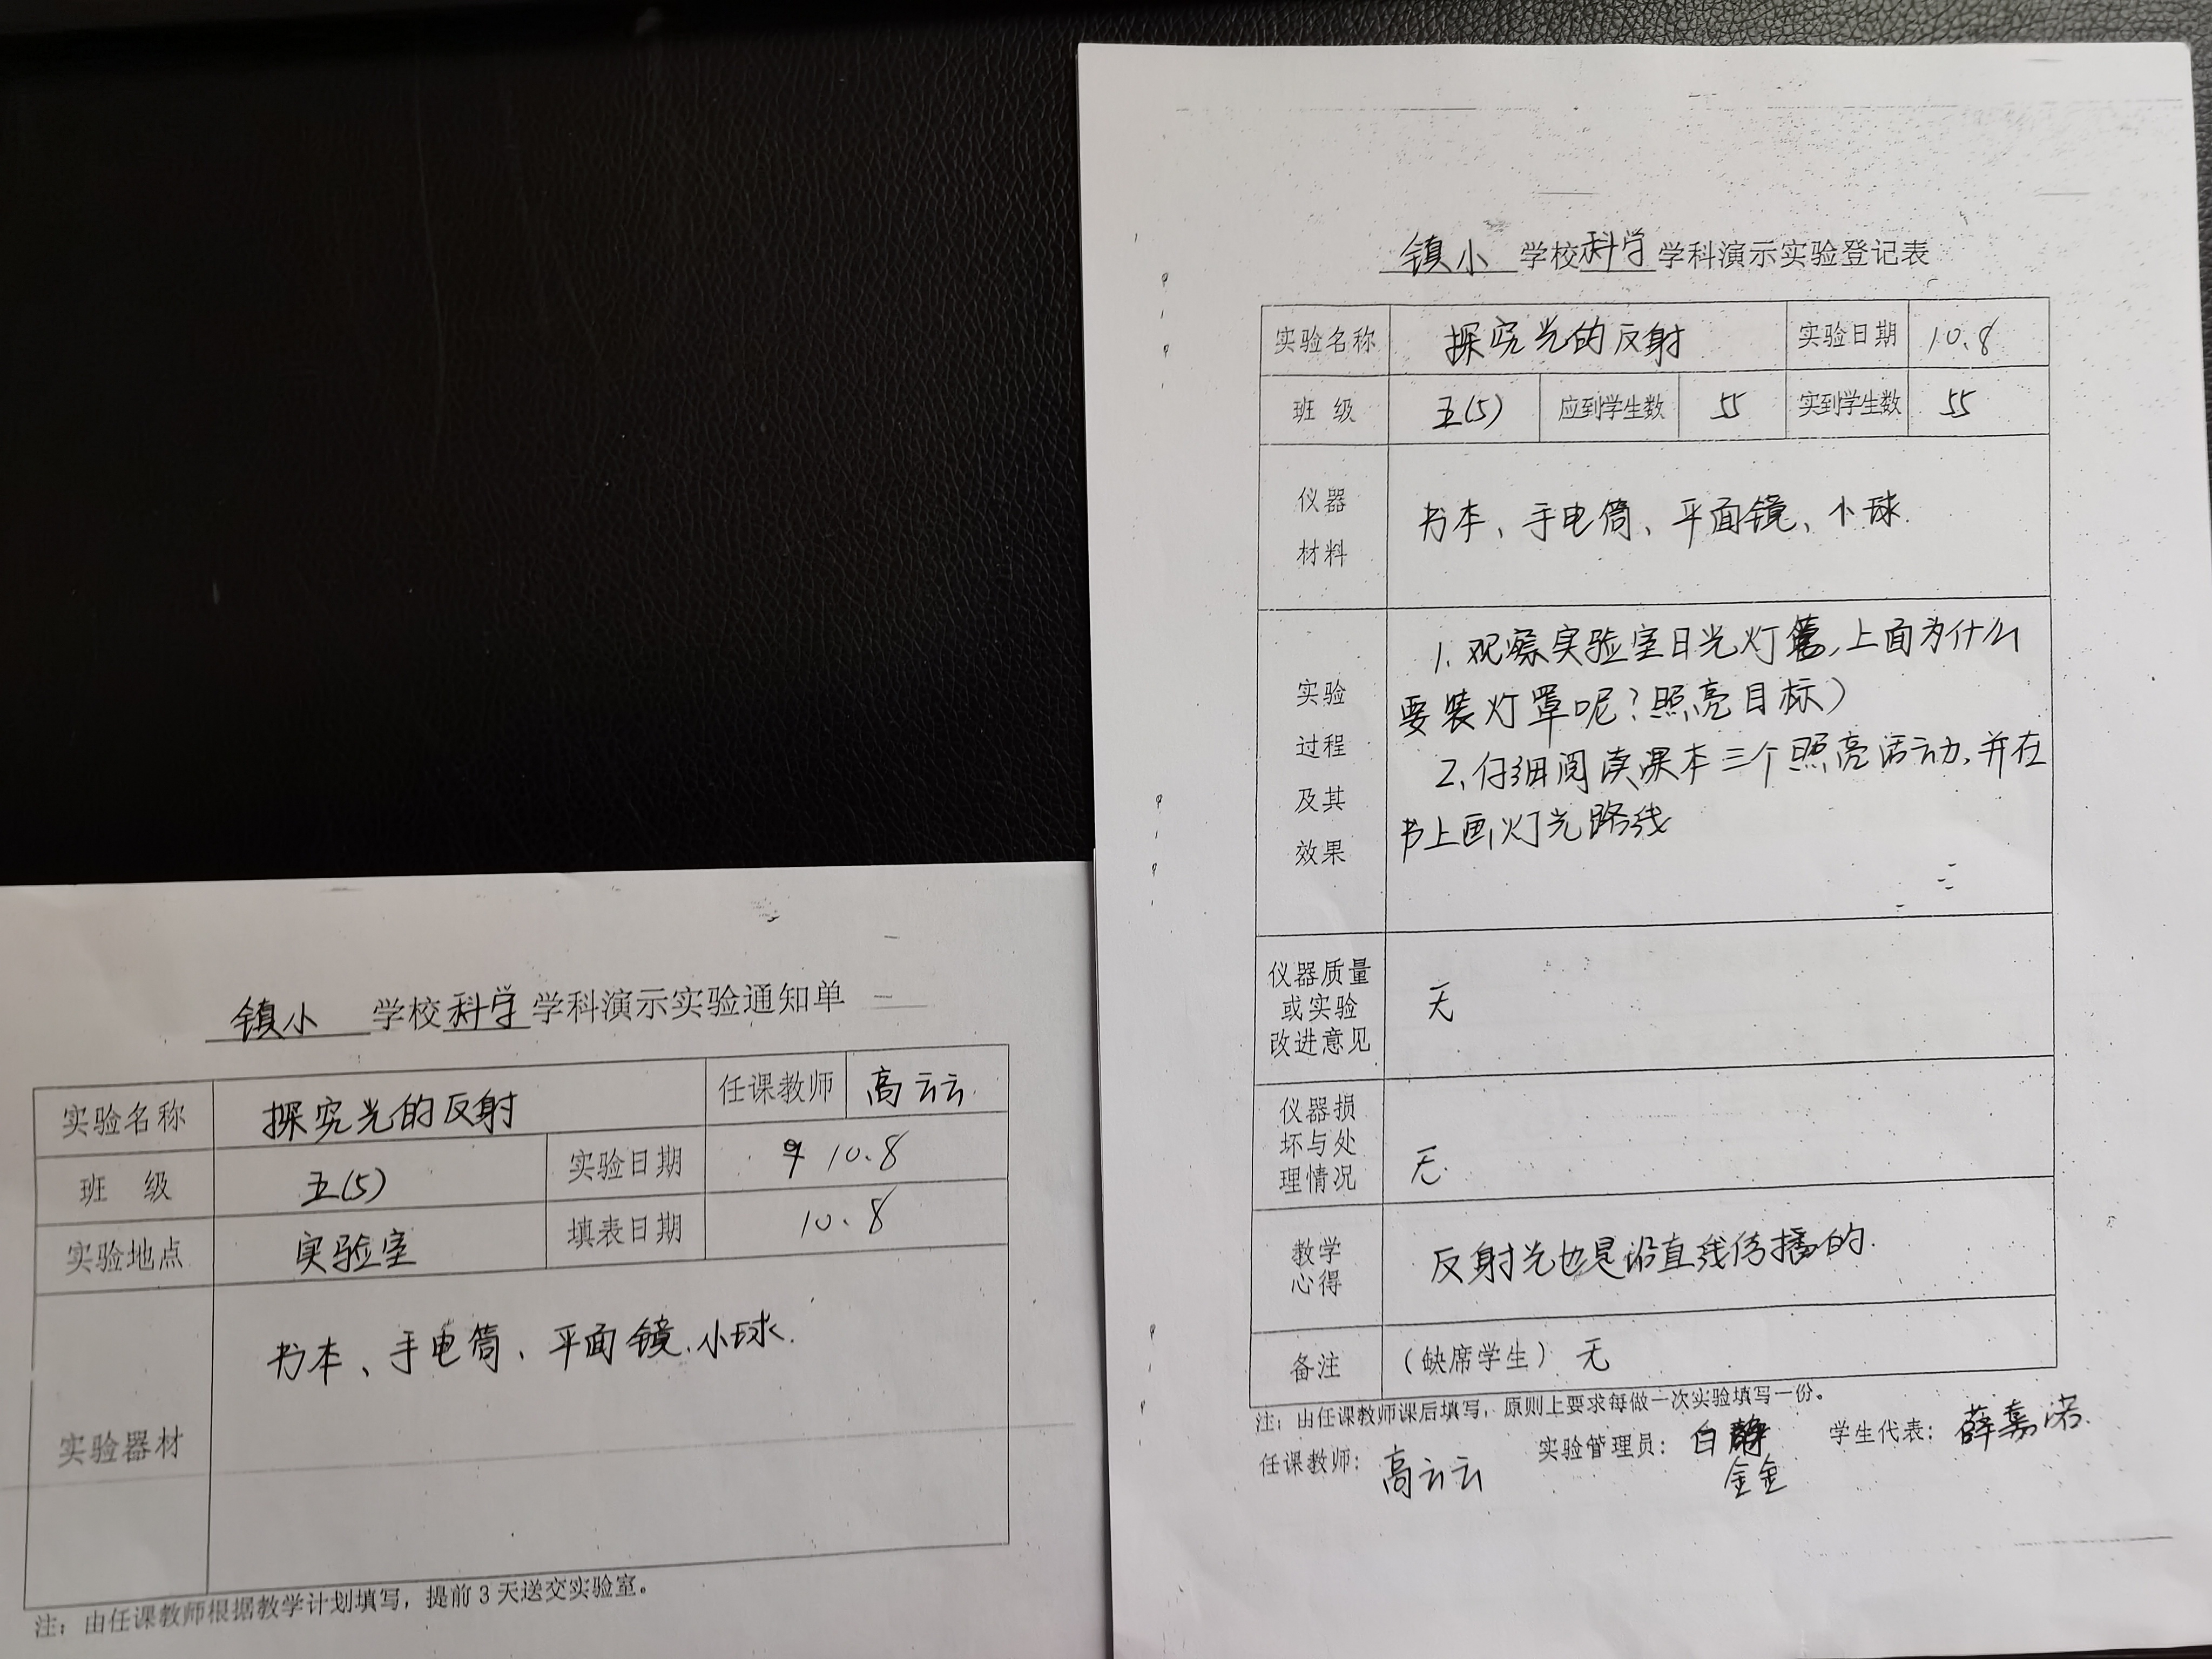 镇小 学校科学学科演示实验通知单
实验名称 探究光的反射 任课教师 高云云
班 级 五(5) 实验日期 10.8
实验地点 实验室 填表日期 10.8
实验器材 书本、手电筒、平面镜、小球.
注：由任课教师根据教学计划填写，提前3天送交实验室。
镇小 学校科学学科演示实验登记表
实验名称 探究光的反射 实验日期 10.8
班 级 五(5) 应到学生数 55 实到学生数 55
仪器
材料
书本、手电筒、平面镜、小球.
实验
过程
及其
效果
1.观察实验室日光灯,上面为什么
要装灯罩呢?照亮目标)
2.仔细阅读课本三个照亮活动,并在
书上画灯光路线
仪器质量
或实验
改进意见
无
仪器损
坏与处
理情况
无.
教学
心得
反射光也是沿直线传播的.
备注 （缺席学生）无
注：由任课教师课后填写，原则上要求每做一次实验填写一份。
任课教师：高云云 实验管理员：白 学生代表：薛嘉诺.
金金